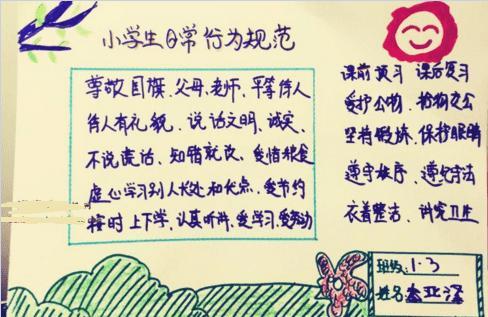 小学生日常行为规范
尊敬国旗、父母、老师、平等待人
待人有礼貌、说话文明、诚实、
不说谎话、知错就改、爱惜粮食
虚心学习别人长处和优点、爱节约
按时上下学、认真听讲、爱学习、爱劳动
课前预习 课后复习
爱护公物、拾物交公
坚持锻炼、保护眼睛
遵守秩序、遵纪守法
衣着整洁、讲究卫生
班级:1.3
姓名:李亚泽